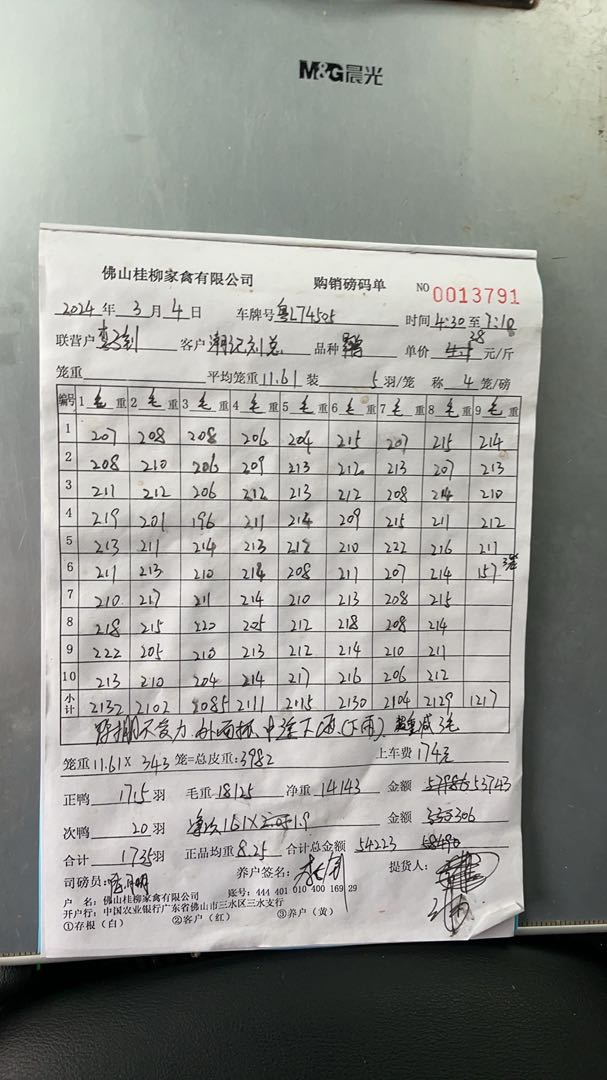 M&G晨光
佛山桂柳家禽有限公司 购销磅码单 NO 0013791
2024 年 3 月 4 日 车牌号 粤L74505 时间 4:30 至 7:10
联营户 客户 品种 单价 38 元/斤
笼重 平均笼重 11.61 装 5 羽/笼 称 4 笼/磅
编号 1 毛 重 2 毛 重 3 毛 重 4 毛 重 5 毛 重 6 毛 重 7 毛 重 8 毛 重 9 毛 重
1 207 208 208 206 204 215 207 215 214
2 208 210 206 209 213 212 213 207 213
3 211 212 206 212 213 212 208 214 210
4 219 201 196 211 214 209 215 211 212
5 213 211 214 213 212 210 222 216 211
6 211 213 210 214 208 211 207 214 157
7 210 217 211 214 210 213 208 215
8 218 215 220 205 212 218 208 214
9 222 205 210 213 212 214 210 211
10 213 210 204 214 217 216 206 212
小计 2132 2102 2085 2111 2115 2130 2104 2129 1217
笼重 11.61 × 343 笼=总皮重: 3982 上车费 174元
正鸭 1715 羽 毛重 18125 净重 14143 金额 53743
次鸭 20 羽 金额 306
合计 1735 羽 正品均重 8.25 合计总金额 54223
司磅员: 养户签名: 提货人:
户 名: 佛山桂柳家禽有限公司 账号: 444 401 010 400 169 29
开户行: 中国农业银行广东省佛山市三水区三水支行
①存根(白) ②客户(红) ③养户(黄)